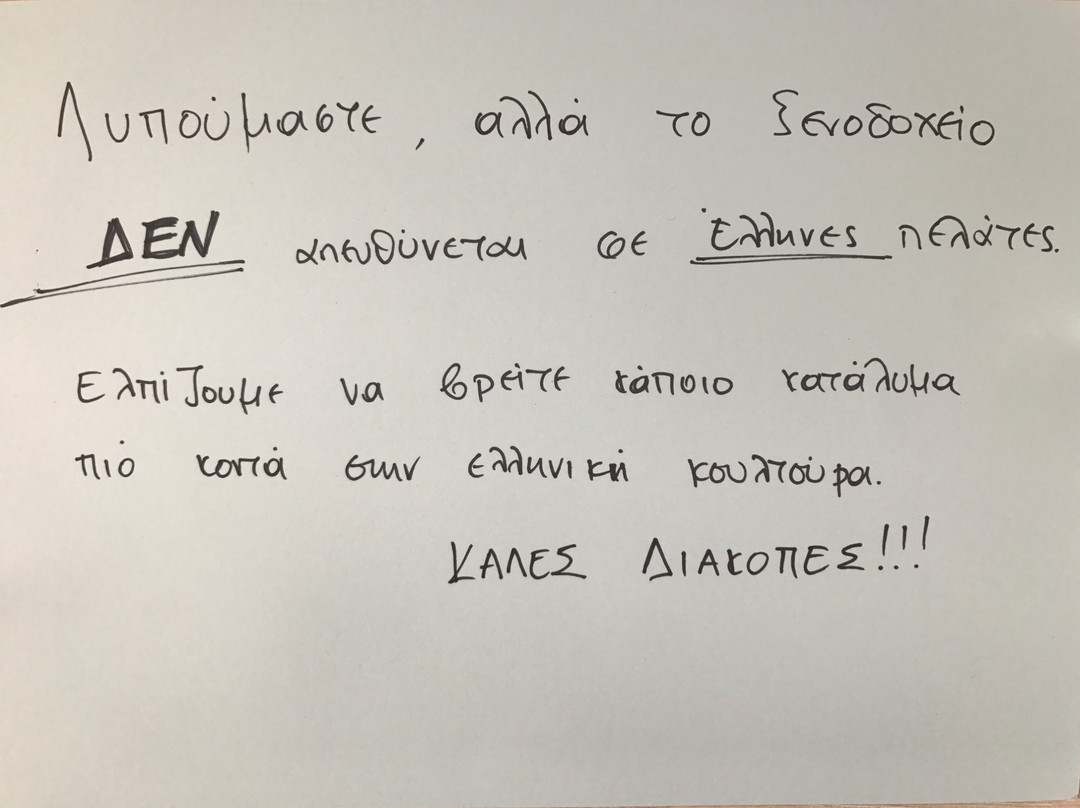 Λυπούμαστε, αλλά το ξενοδοχείο
ΔΕΝ απευθύνεται σε Έλληνες πελάτες.
Ελπίζουμε να βρείτε κάποιο κατάλυμα
πιό κοντά στην ελληνική κουλτούρα.
ΚΑΛΕΣ ΔΙΑΚΟΠΕΣ!!!